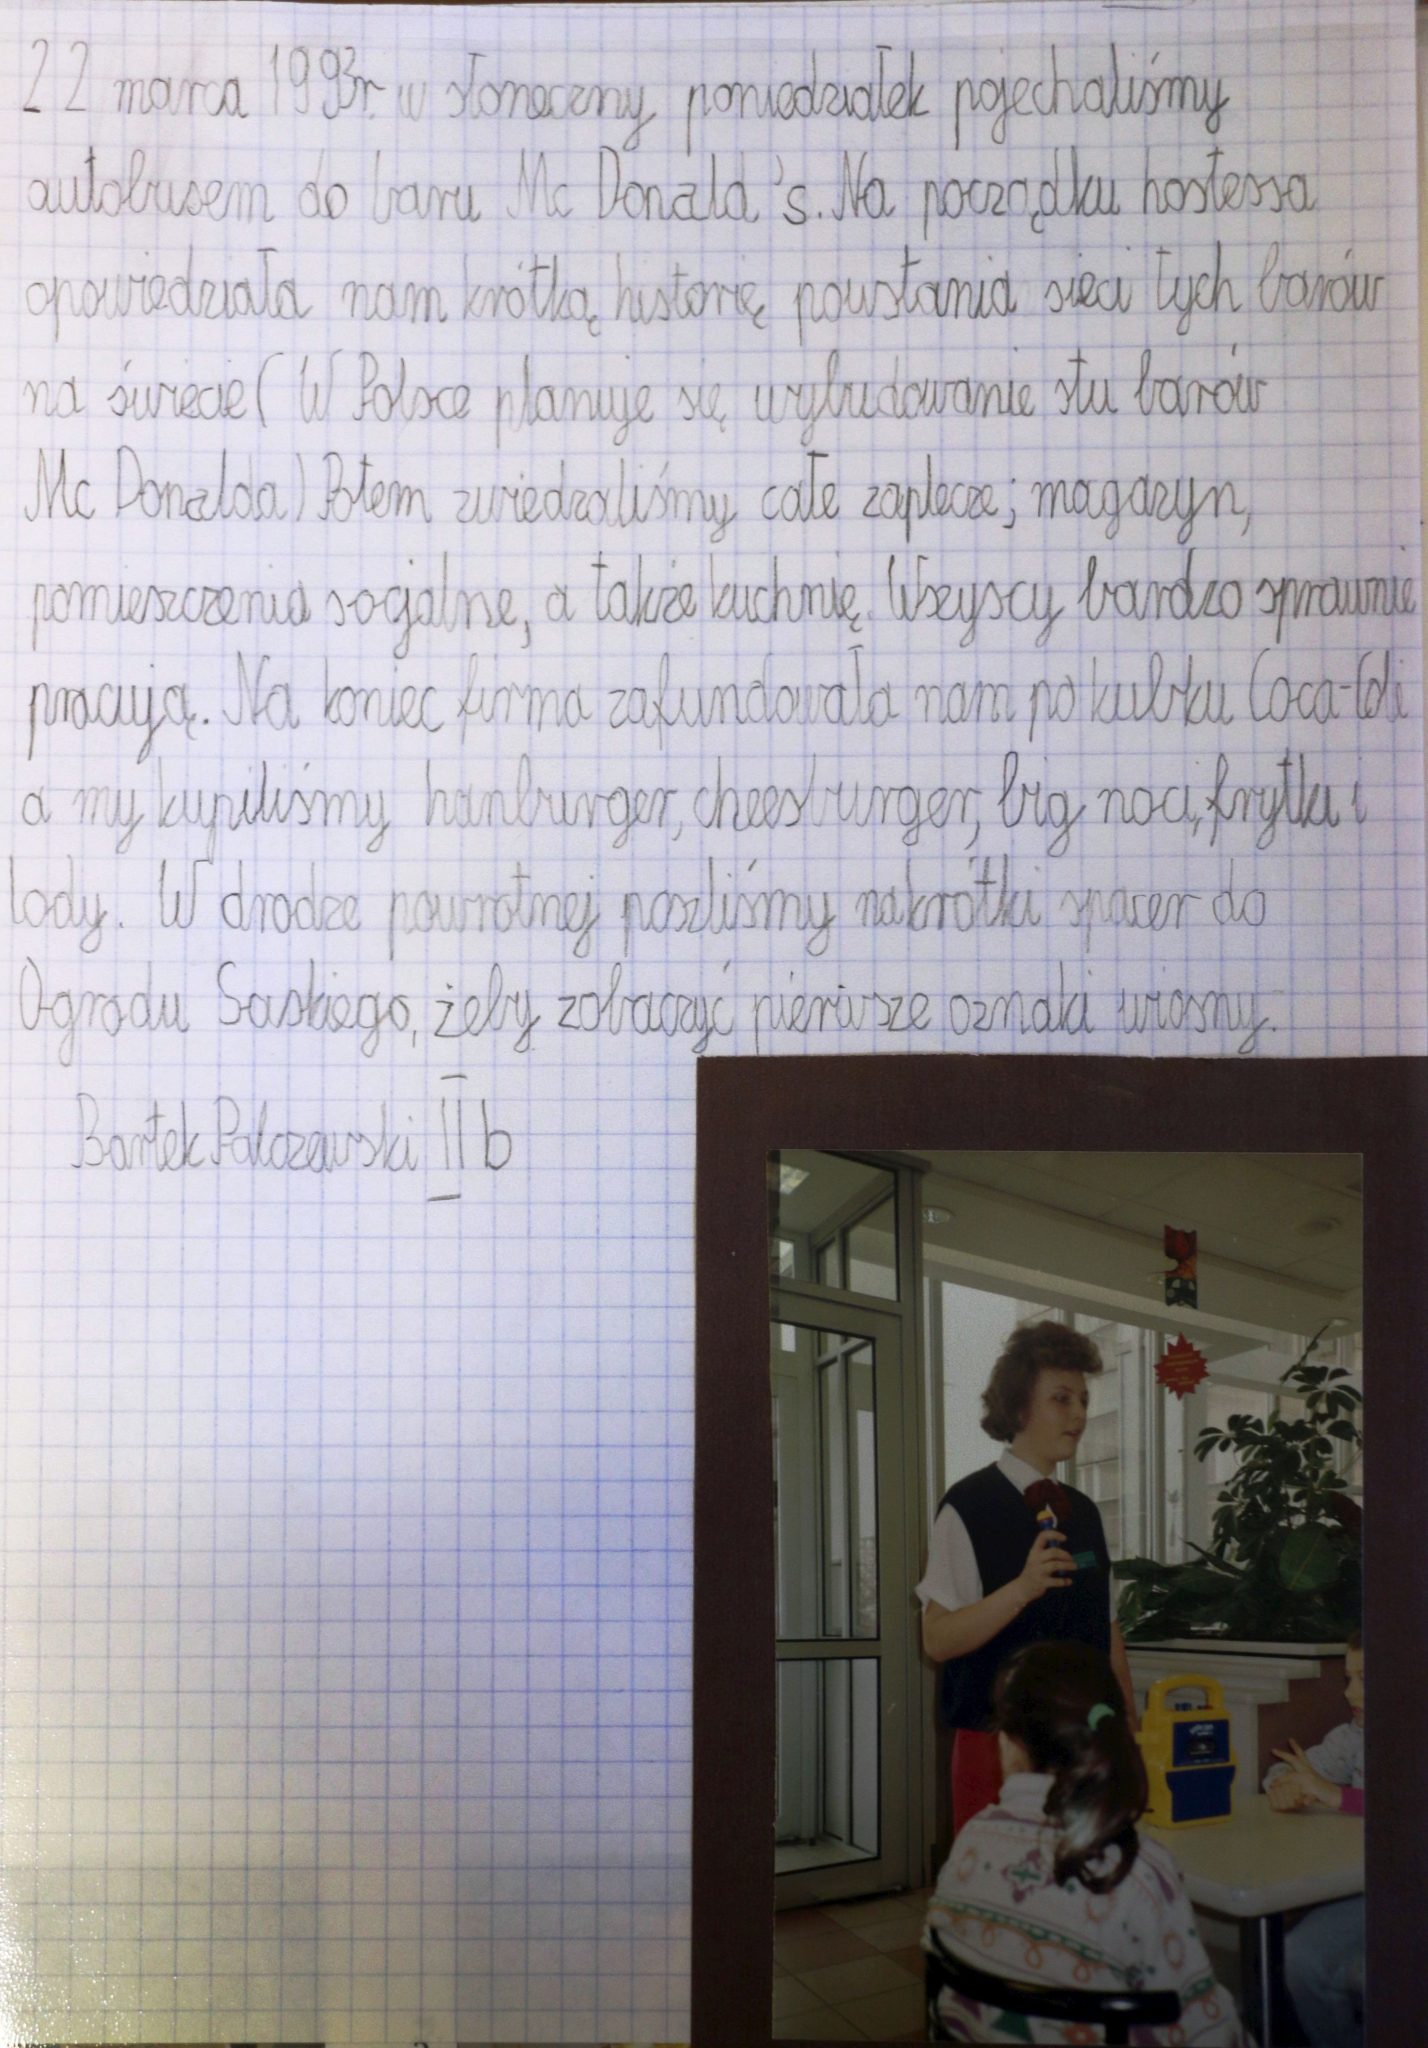 22 marca 1993r. w słoneczny poniedziałek pojechaliśmy
autobusem do baru Mc Donald's. Na początku hostessa
opowiedziała nam krótką historię powstania sieci tych barów
na świecie ( W Polsce planuje się wybudowanie stu barów
Mc Donalda) Potem zwiedzaliśmy całe zaplecze; magazyn,
pomieszczenia socjalne, a także kuchnię. Wszyscy bardzo sprawnie
pracują. Na koniec firma zafundowała nam po kubku Coca-Coli
a my kupiliśmy hanburger, cheesburger, big maci, frytki i
lody. W drodze powrotnej poszliśmy na krótki spacer do
Ogrodu Saskiego, żeby zobaczyć pierwsze oznaki wiosny.
Bartek Palczewski II b